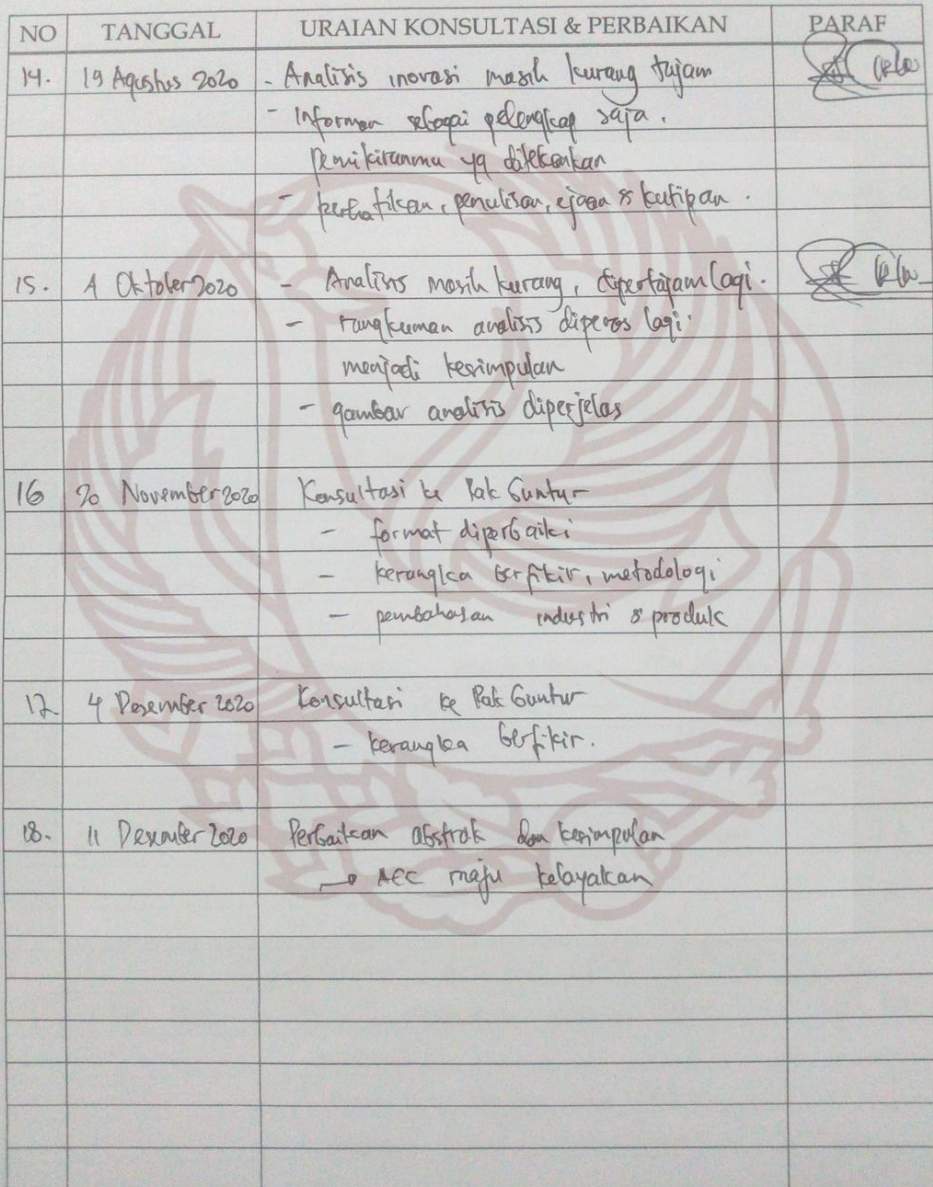 NO TANGGAL URAIAN KONSULTASI & PERBAIKAN PARAF
14. 19 Agustus 2020 - Analisis inovasi masih kurang tajam
- Informan sebagai pelengkap saja.
Pemikiranmu yg ditekankan
- perbaikan, penulisan, ejaan & kutipan.
15. 1 Oktober 2020 - Analisis masih kurang, dipertajam lagi.
- rangkuman analisis diperas lagi
menjadi kesimpulan
- gambar analisis diperjelas
16 20 November 2020 Konsultasi ke Pak Guntur
- format diperbaiki
- kerangka berfikir, metodologi
- pembahasan industri & produk
17. 4 Desember 2020 Konsultasi ke Pak Guntur
- kerangka berfikir.
18. 11 Desember 2020 Perbaikan abstrak dan kesimpulan
→ ACC maju kelayakan